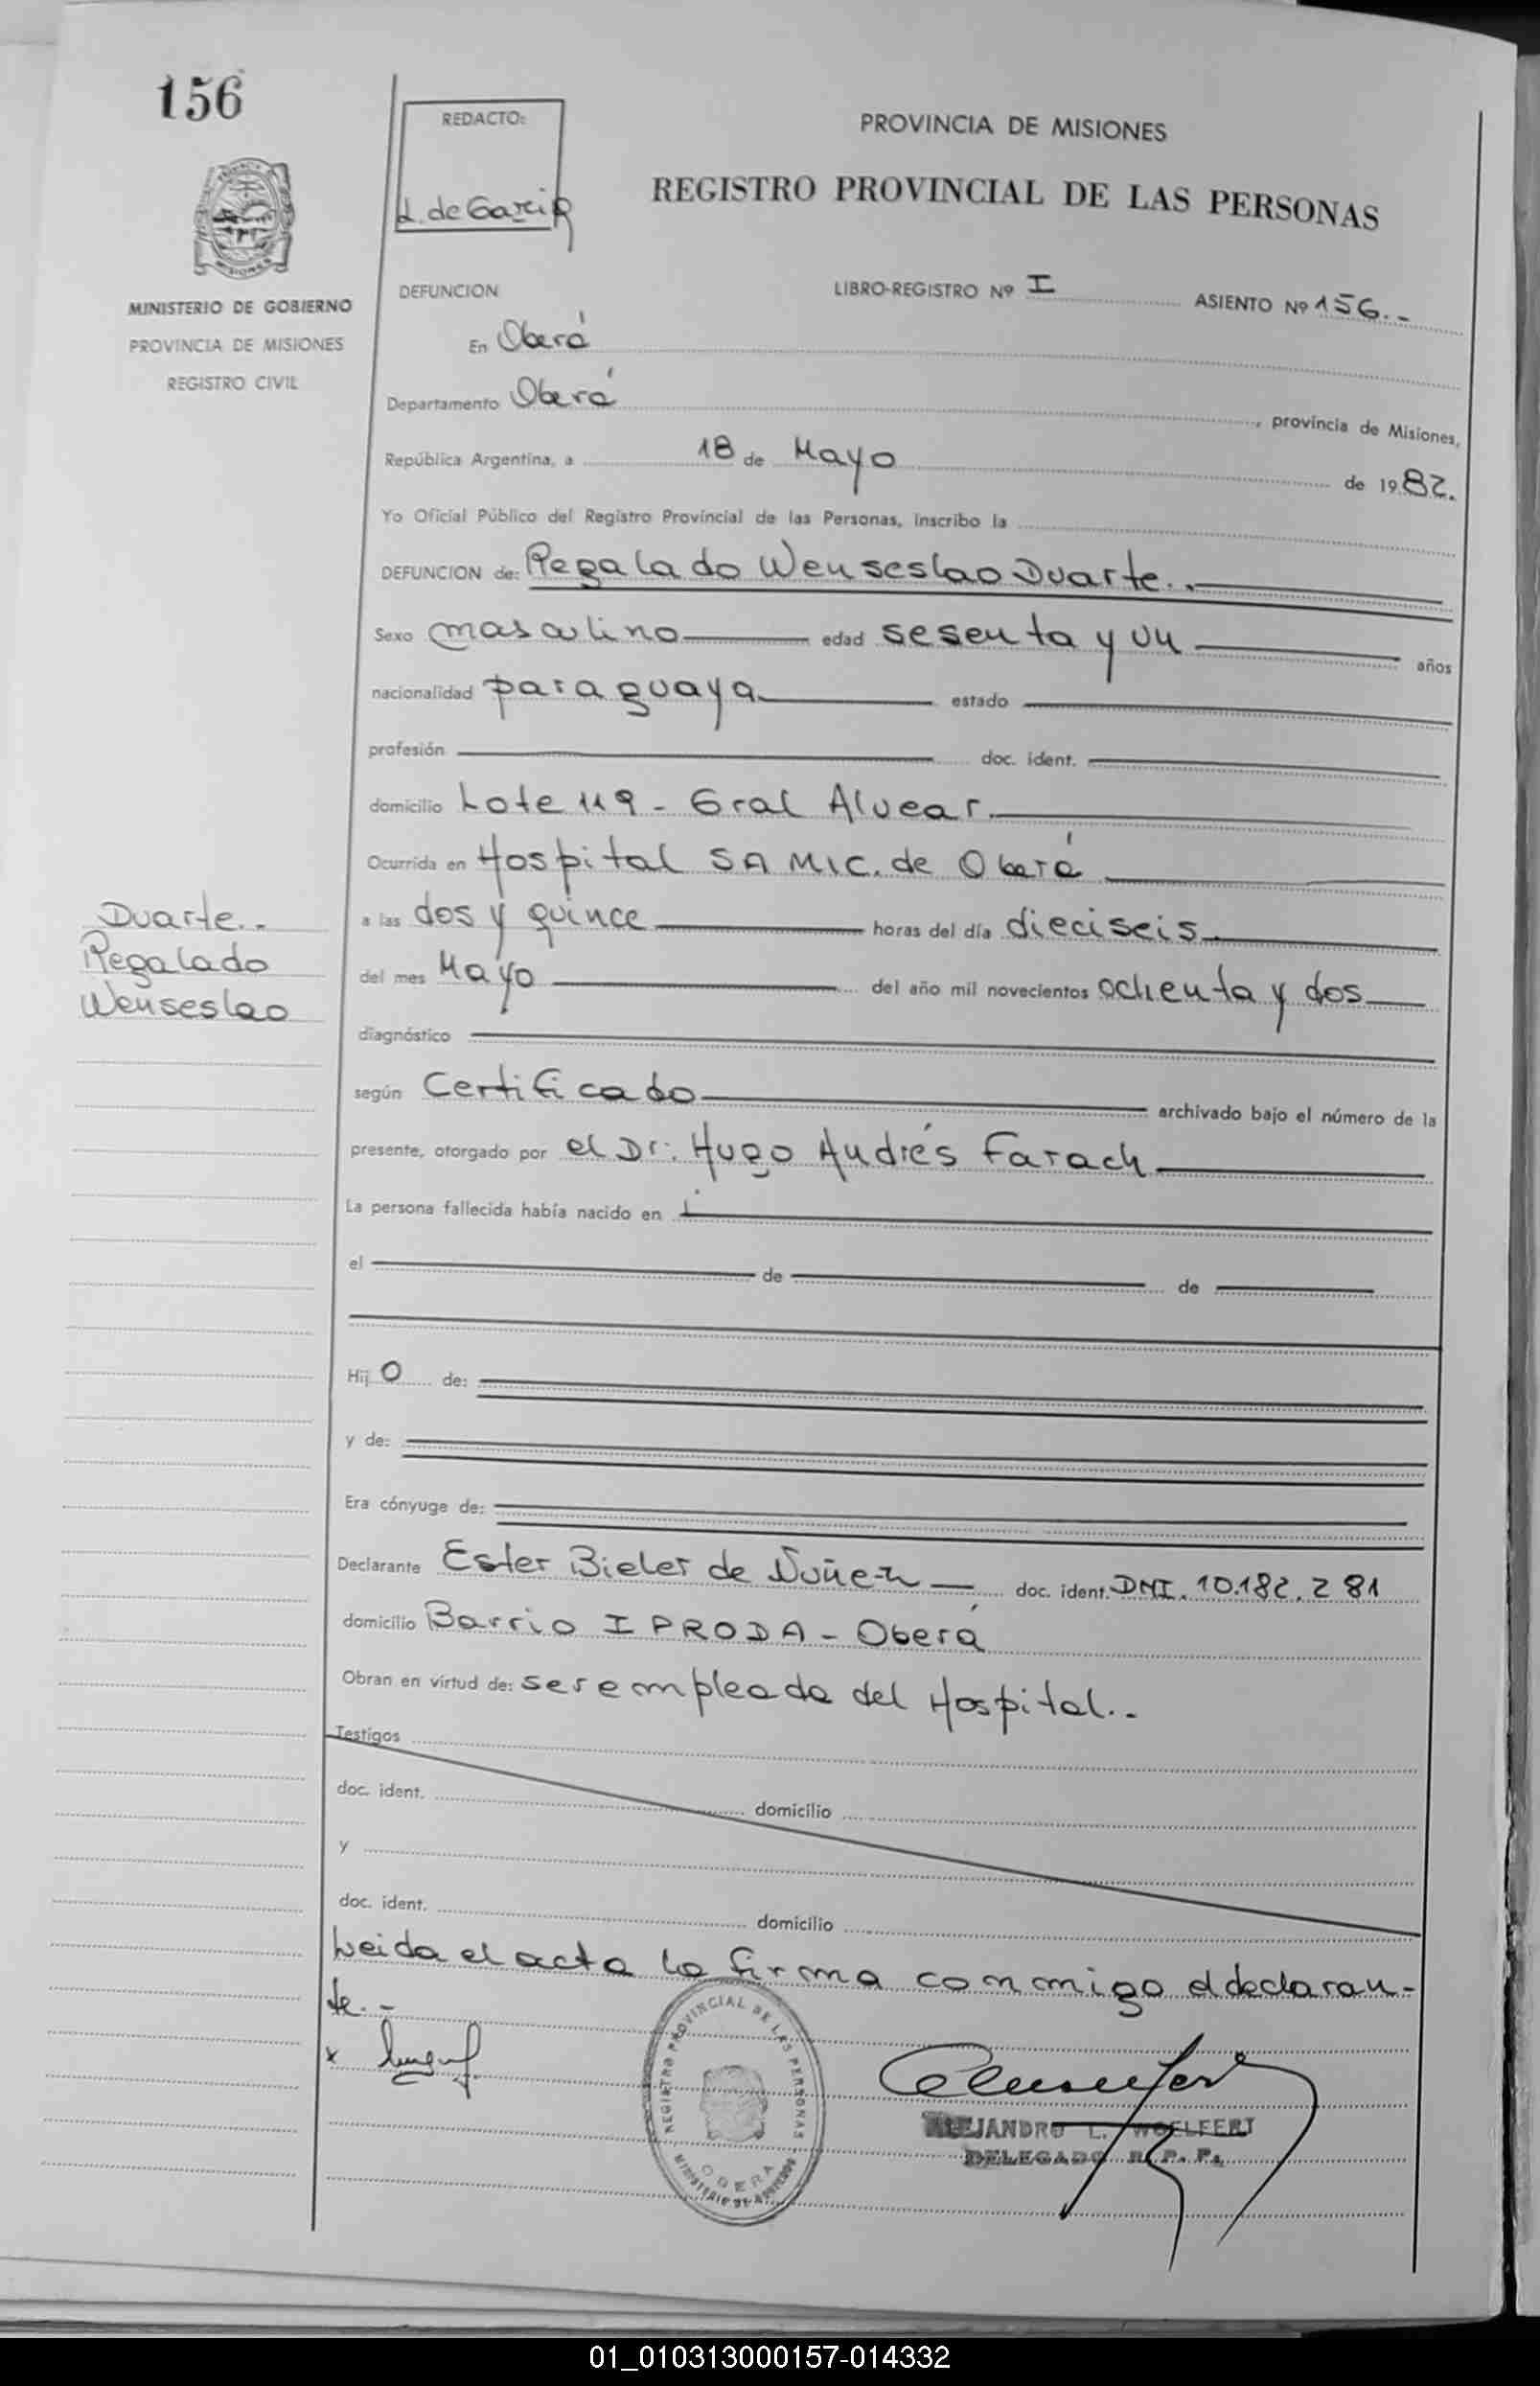 156
REDACTO:
L. de Garcia
PROVINCIA DE MISIONES
REGISTRO PROVINCIAL DE LAS PERSONAS
MISIONES
MINISTERIO DE GOBIERNO
PROVINCIA DE MISIONES
REGISTRO CIVIL
DEFUNCION LIBRO-REGISTRO Nº I ASIENTO Nº 156.-
En Oberá
Departamento Oberá, provincia de Misiones,
República Argentina, a 18 de Mayo de 1982.
Yo Oficial Público del Registro Provincial de las Personas, inscribo la
DEFUNCION de: Regalado Wenseslao Duarte.-
Sexo masculino edad sesenta y un años
nacionalidad paraguaya estado
profesión doc. ident.
domicilio Lote 119 - Gral Alvear.
Ocurrida en Hospital SAMIC. de Oberá
a las dos y quince horas del día dieciseis
del mes Mayo del año mil novecientos ochenta y dos
diagnóstico
según Certificado archivado bajo el número de la
presente, otorgado por el Dr: Hugo Andrés Farach
La persona fallecida había nacido en
el de de
Hijo de:
y de:
Era cónyuge de:
Declarante Ester Bieler de Nuñez doc. ident. DNI. 10.182.281
domicilio Barrio IPRODA - Oberá
Obran en virtud de: ser empleada del Hospital.-
Testigos
doc. ident. domicilio
y
doc. ident. domicilio
Leida el acta la firma conmigo el declaran-
te.-
Duarte.-
Regalado
Wenseslao
REGISTRO PROVINCIAL DE LAS PERSONAS
OBERA
MINISTERIO DE GOBIERNO
ALEJANDRO L. WOELFERT
DELEGADO R. P. P.
01_010313000157-014332